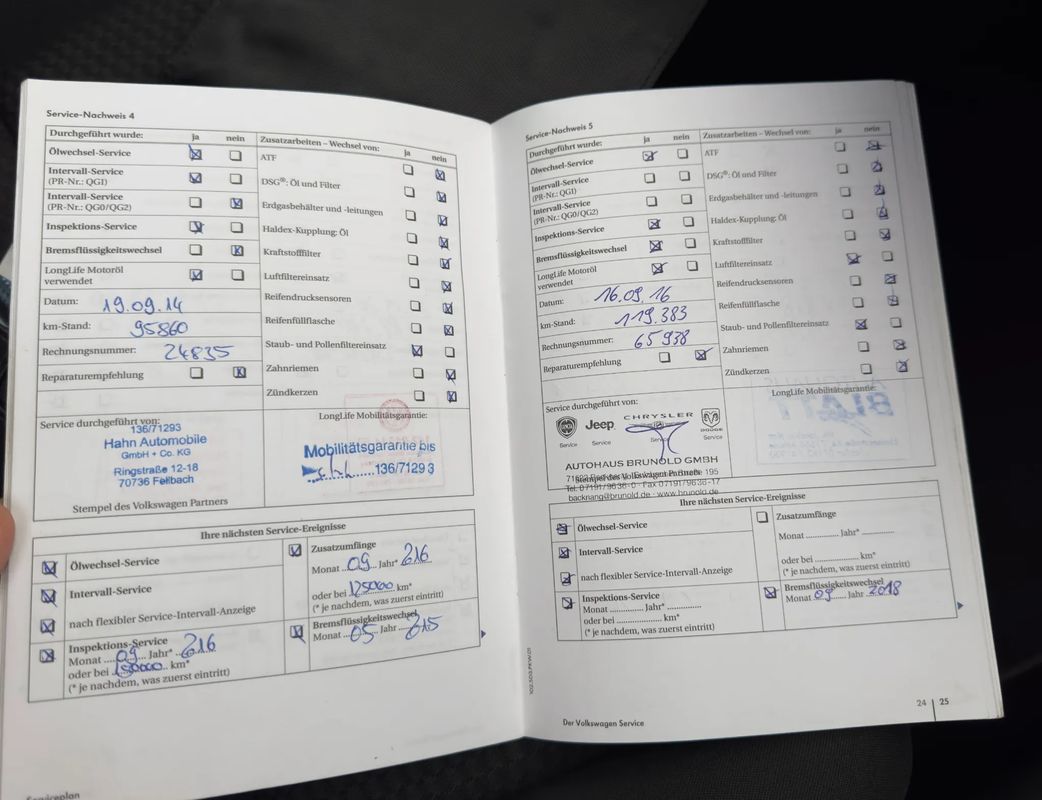 Service-Nachweis 4
Durchgeführt wurde: ja nein
Ölwechsel-Service
Intervall-Service
(PR-Nr.: QGI)
Intervall-Service
(PR-Nr.: QG0/QG2)
Inspektions-Service
Bremsflüssigkeitswechsel
LongLife Motoröl
verwendet
Datum: 19.09.14
km-Stand: 95860
Rechnungsnummer: 24835
Reparaturempfehlung
Zusatzarbeiten – Wechsel von: ja nein
ATF
DSG®: Öl und Filter
Erdgasbehälter und -leitungen
Haldex-Kupplung: Öl
Kraftstofffilter
Luftfiltereinsatz
Reifendrucksensoren
Reifenfüllflasche
Staub- und Pollenfiltereinsatz
Zahnriemen
Zündkerzen
Service durchgeführt von:
136/71293
Hahn Automobile
GmbH + Co. KG
Ringstraße 12-18
70736 Fellbach
Stempel des Volkswagen Partners
LongLife Mobilitätsgarantie:
Mobilitätsgarantie bis
136/71293
Ihre nächsten Service-Ereignisse
Ölwechsel-Service
Intervall-Service
nach flexibler Service-Intervall-Anzeige
Inspektions-Service
Monat 09 Jahr* 216
oder bei 150000 km*
(* je nachdem, was zuerst eintritt)
Zusatzumfänge
Monat 09 Jahr* 216
oder bei 125000 km*
(* je nachdem, was zuerst eintritt)
Bremsflüssigkeitswechsel
Monat 05 Jahr 215
Serviceplan
Service-Nachweis 5
Durchgeführt wurde: ja nein
Ölwechsel-Service
Intervall-Service
(PR-Nr.: QGI)
Intervall-Service
(PR-Nr.: QG0/QG2)
Inspektions-Service
Bremsflüssigkeitswechsel
LongLife Motoröl
verwendet
Datum: 16.09.16
km-Stand: 119.383
Rechnungsnummer: 65938
Reparaturempfehlung
Zusatzarbeiten – Wechsel von: ja nein
ATF
DSG®: Öl und Filter
Erdgasbehälter und -leitungen
Haldex-Kupplung: Öl
Kraftstofffilter
Luftfiltereinsatz
Reifendrucksensoren
Reifenfüllflasche
Staub- und Pollenfiltereinsatz
Zahnriemen
Zündkerzen
Service durchgeführt von:
CHRYSLER
Jeep
DODGE
Service Service Service Service
AUTOHAUS BRUNOLD GMBH
Stempel des Volkswagen Partners
Tel. 07191/9636-0 · Fax 07191/9636-17
backnang@brunold.de · www.brunold.de
LongLife Mobilitätsgarantie:
Ihre nächsten Service-Ereignisse
Ölwechsel-Service
Intervall-Service
nach flexibler Service-Intervall-Anzeige
Inspektions-Service
Monat .............. Jahr* ..............
oder bei .................. km*
(* je nachdem, was zuerst eintritt)
Zusatzumfänge
Monat .............. Jahr* ..............
oder bei .................. km*
(* je nachdem, was zuerst eintritt)
Bremsflüssigkeitswechsel
Monat 09 Jahr 2018
Der Volkswagen Service
24 | 25